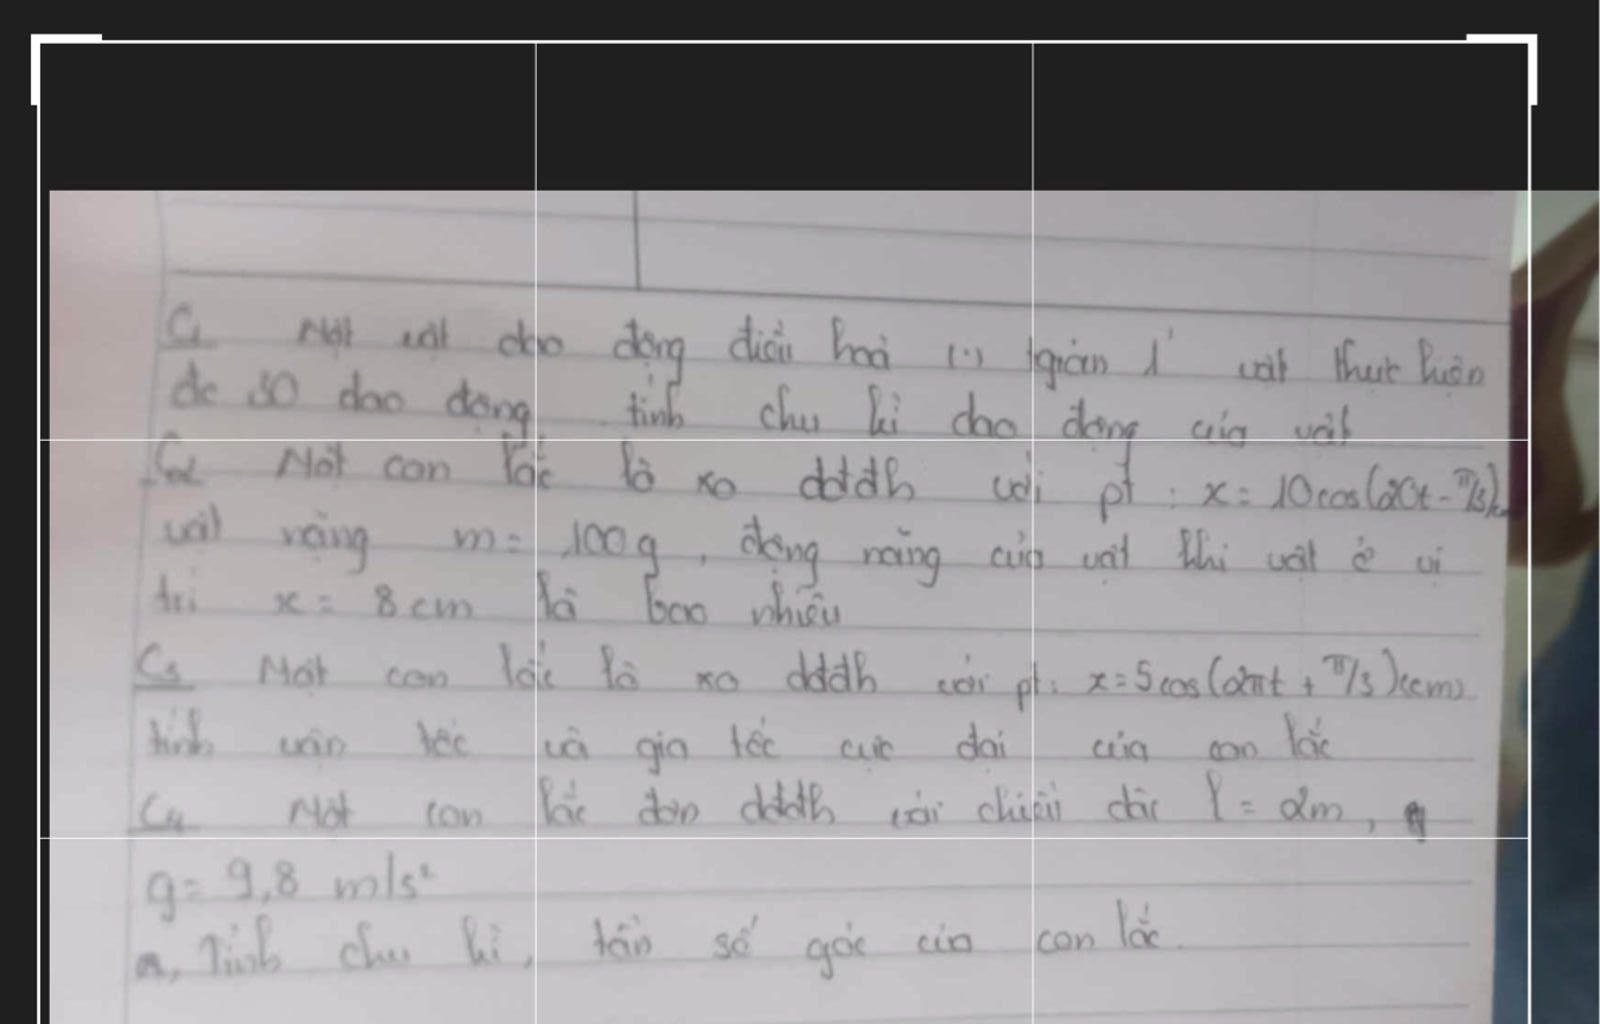 C1 Một vật dao động điều hoà (.) tgian 1' vật thực hiện
đc 30 dao động tính chu kì dao động của vật
C2 Một con lắc lò xo dđđh với pt : x = 10cos(20t - π/3)cm
vật nặng m = 100g , động năng của vật khi vật ở vị
trí x = 8 cm là bao nhiêu
C3 Một con lắc lò xo dđđh với pt: x = 5cos(2πt + π/3)(cm)
tính vận tốc và gia tốc cực đại của con lắc
C4 Một con lắc đơn dđđh với chiều dài l = 2m ,
g = 9,8 m/s²
a, Tính chu kì , tần số góc của con lắc.